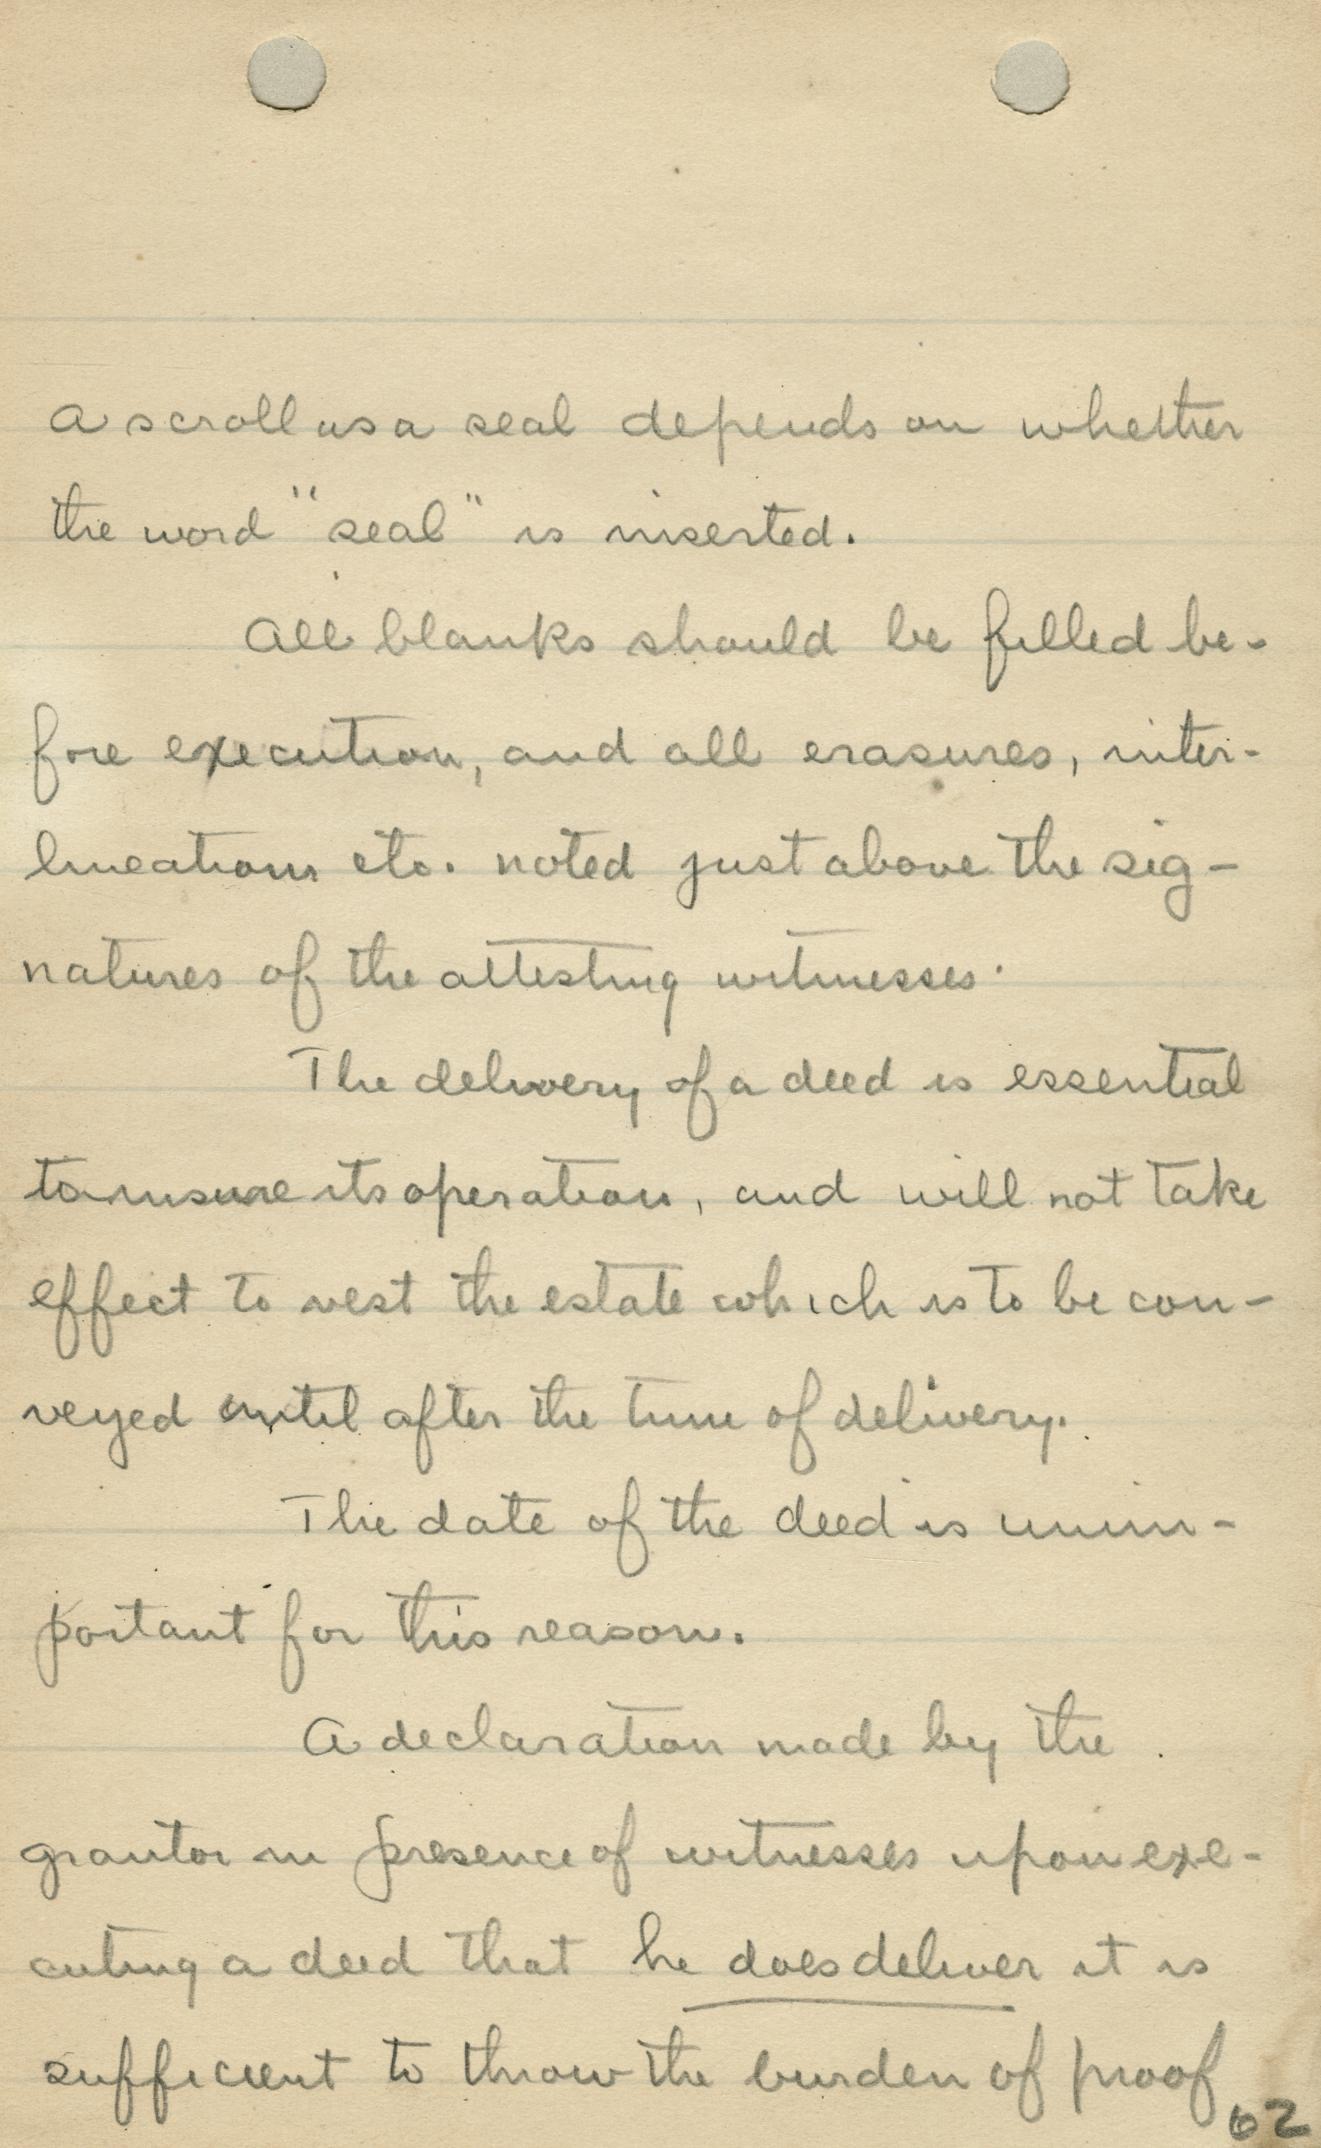 a scroll as a seal depends on whether
the word "seal" is inserted.
All blanks should be filled be-
fore execution, and all erasures, inter-
lineations etc. noted just above the sig-
natures of the attesting witnesses.
The delivery of a deed is essential
to insure its operation, and will not take
effect to vest the estate which is to be con-
veyed until after the time of delivery.
The date of the deed is unim-
portant for this reason.
A declaration made by the
grantor in presence of witnesses upon exe-
cuting a deed that he does deliver it is
sufficient to throw the burden of proof
62